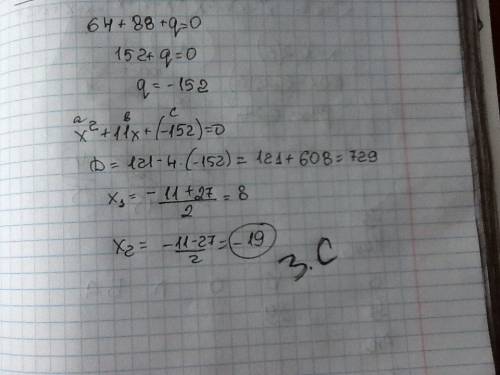 64 + 88 + q = 0
152 + q = 0
q = -152
a b c
x² + 11x + (-152) = 0
D = 121 - 4 · (-152) = 121 + 608 = 729
x₁ = -11 + 27 / 2 = 8
x₂ = -11 - 27 / 2 = -19
3. C